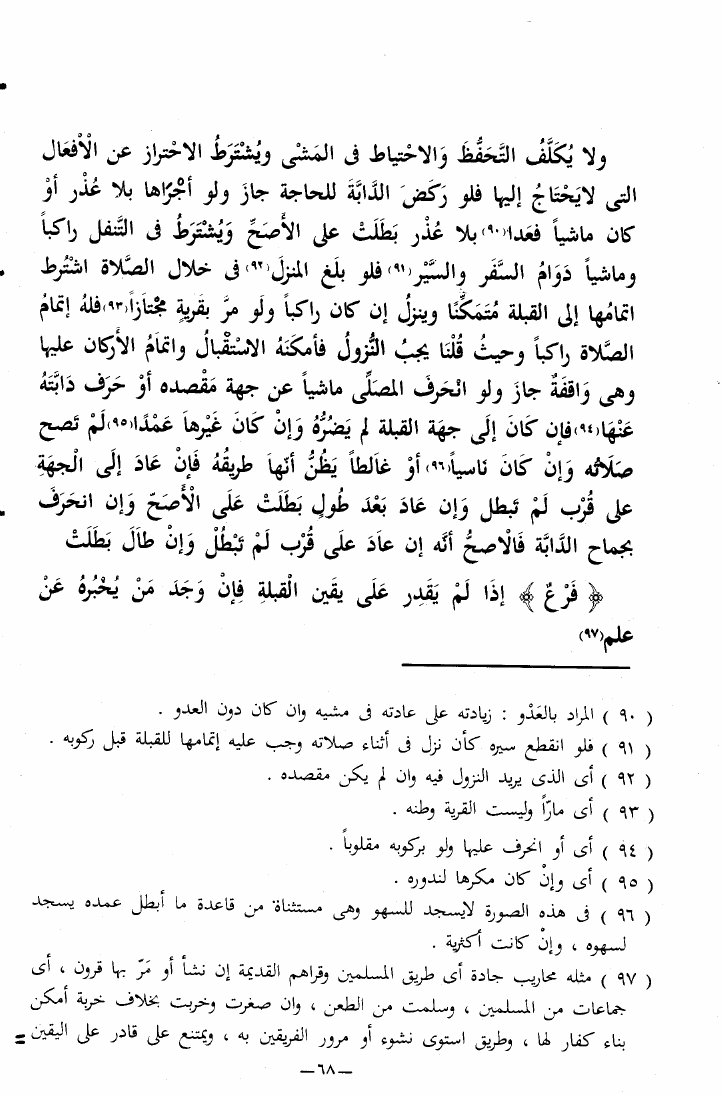 ولا يُكَلَّفُ التَّحَفُّظَ وَالاحْتياط فى المَشْى ويُشْتَرَطُ الاحْتراز عن الْأفعَال
التى لايَحْتَاجُ إليها فلو رَكَضَ الدَّابَّةَ للحاجة جازَ ولو أجْرَاها بلا عُذْر أوْ
كان ماشياً فَعَدا(٩٠) بلا عُذْر بَطَلَتْ على الأصَحِّ وَيُشْتَرَطُ فى التَّنفل راكباً
وماشياً دَوَامُ السَّفَر والسَّيْر(٩١) فلو بلَغ المنزلَ(٩٢) فى خلال الصَّلاة اشْتُرط
اتمامُها إلى القبلة مُتَمَكِّنًا وينزلُ إن كان راكباً ولَو مرَّ بقريةٍ مجْتَازاً(٩٣) فلهُ إتمامُ
الصَّلاة راكباً وحيثُ قُلْنَا يجبُ النُّزولُ فأمكنَهُ الاسْتقْبالُ واتمَامُ الأركان عليها
وهى وَاقفَةٌ جازَ ولو انْحَرفَ المصَلِّى ماشياً عن جهة مَقْصده أوْ حَرَف دَابَّتَهُ
عَنْهَا(٩٤) فإن كَانَ إلَى جهَة القبلة لم يَضُرُّهُ وَإنْ كَانَ غَيْرهاَ عَمْدًا(٩٥) لَمْ تَصح
صلَاتُه وَإنْ كَانَ نَاسياً(٩٦) أوْ غالطاً يَظُنُّ أنّها طريقُهُ فَإنْ عَادَ إلَى الْجهَةِ
على قُرْب لَمْ تَبطل وَإن عَادَ بَعْد طُولٍ بَطَلَتْ عَلَى الْأصَحّ وَإن انحَرَفَ
بجماح الدَّابَّة فَالْاصحُّ أنَّه إن عاَدَ على قُرْب لَمْ تَبْطُلْ وَإنْ طالَ بَطَلَتْ
﴿ فَرْعٌ ﴾ إذَا لَمْ يَقَدِر عَلَى يقَين الْقبلةِ فِإنْ وَجَدَ مَنْ يُخْبُرهُ عَنْ
علم(٩٧)
( ٩٠ ) المراد بالعَدْو : زيادته على عادته فى مشيه وان كان دون العدو .
( ٩١ ) فلو انقطع سيره كأن نزل فى أثناء صلاته وجب عليه إتمامها للقبلة قبل ركوبه .
( ٩٢ ) أى الذى يريد النزول فيه وان لم يكن مقصده .
( ٩٣ ) أى مارّاً وليست القرية وطنه .
( ٩٤ ) أى أو انحرف عليها ولو بركوبه مقلوباً .
( ٩٥ ) أى وإنْ كان مكرها لندوره .
( ٩٦ ) فى هذه الصورة لايسجد للسهو وهى مستثناة من قاعدة ما أبطل عمده يسجد
لسهوه ، وإنْ كانت أكثرية .
( ٩٧ ) مثله محاريب جادة أى طريق المسلمين وقراهم القديمة إن نشأ أو مَرّ بها قرون ، أى
جماعات من المسلمين ، وسلمت من الطعن ، وان صغرت وخربت بخلاف خربة أمكن
بناء كفار لها ، وطريق استوى نشوء أو مرور الفريقين به ، ويمتنع على قادر على اليقين =
—٦٨—